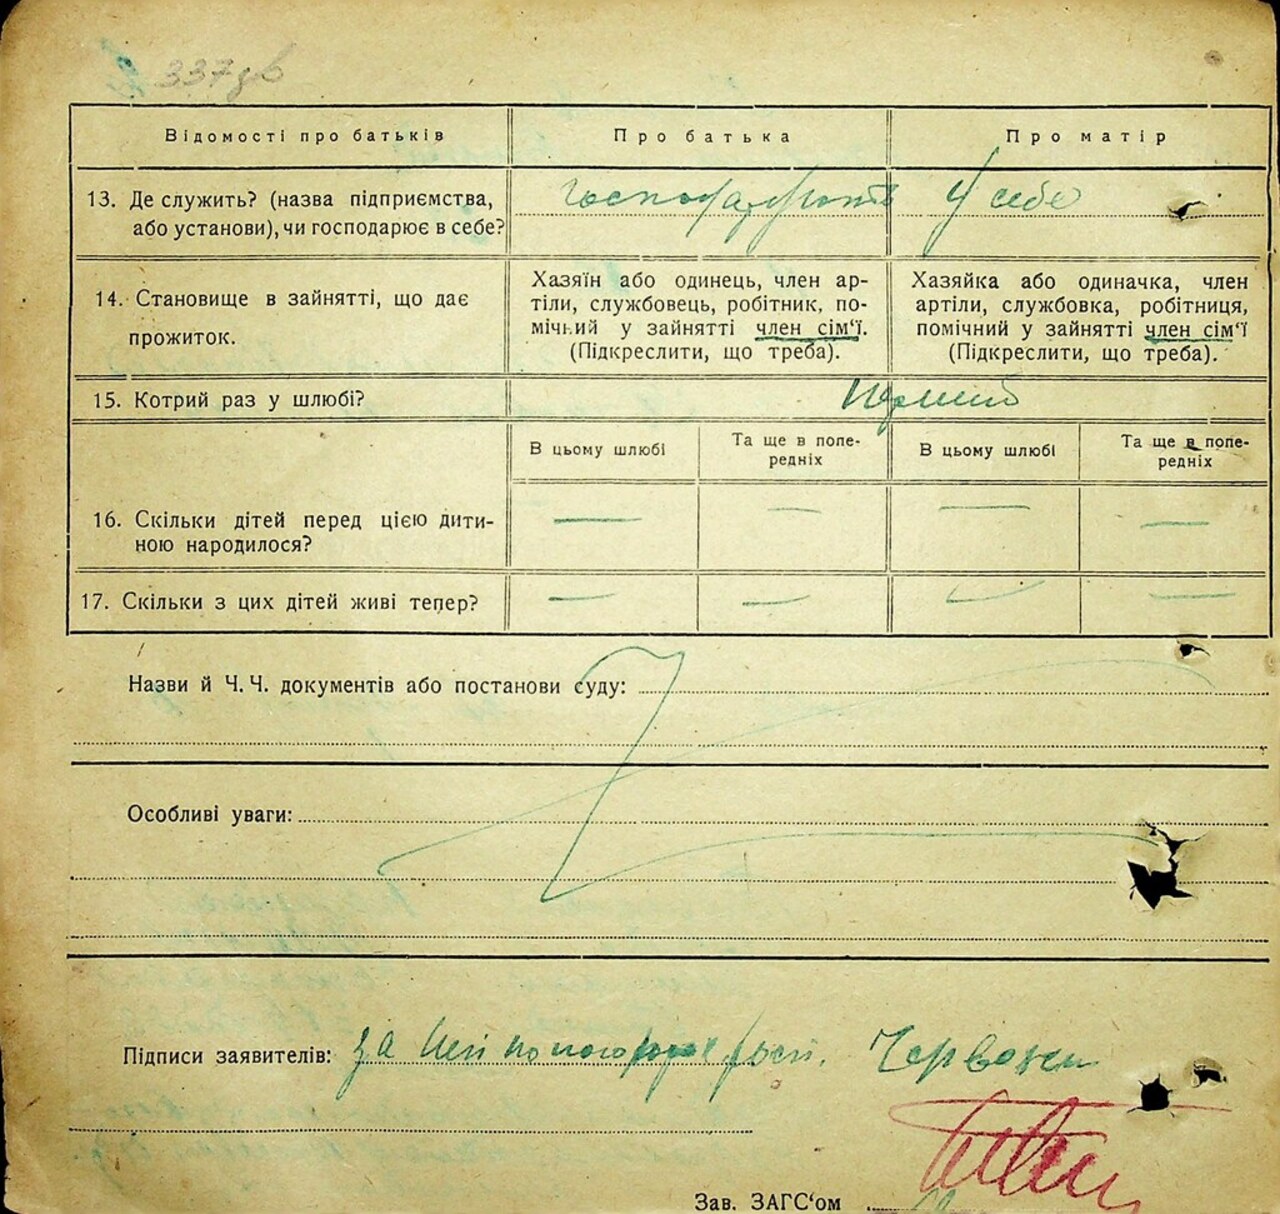 337зв
Відомості про батьків
Про батька
Про матір
13. Де служить? (назва підприємства,
або установи), чи господарює в себе?
господарюють у себе
14. Становище в зайнятті, що дає
прожиток.
Хазяїн або одинець, член ар-
тіли, службовець, робітник, по-
мічний у зайнятті член сім‘ї.
(Підкреслити, що треба).
Хазяйка або одиначка, член
артіли, службовка, робітниця,
помічний у зайнятті член сім‘ї
(Підкреслити, що треба).
15. Котрий раз у шлюбі?
В цьому шлюбі
Та ще в попе-
редніх
В цьому шлюбі
Та ще в попе-
редніх
16. Скільки дітей перед цією дити-
ною народилося?
— — — —
17. Скільки з цих дітей живі тепер?
— — — —
Назви й Ч. Ч. документів або постанови суду:
Особливі уваги:
Підписи заявителів: за
Зав. ЗАГС‘ом